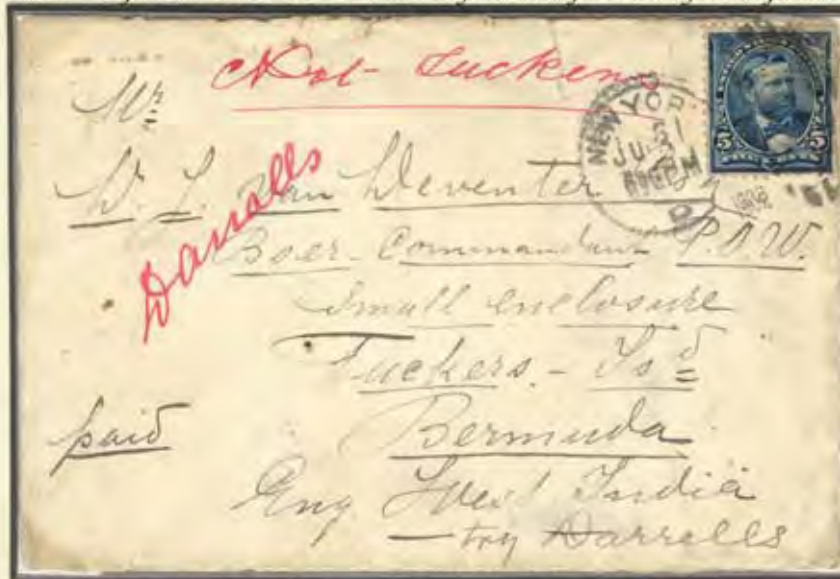 Not Tuckens
Mr
W. L. Van Deventer
Darrells
Boer Commandant P.O.W.
Small enclosure
Tuckers - Isd
paid
Bermuda
Eng West India
— try Darrells
NEW YOR
5 5